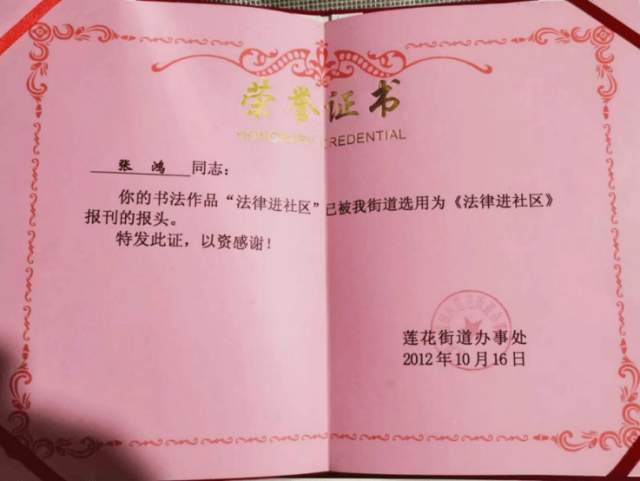 荣誉证书
HONORARY CREDENTIAL
张 鸿 同志：
你的书法作品“法律进社区”已被我街道选用为《法律进社区》
报刊的报头。
特发此证，以资感谢！
莲花街道办事处
2012年10月16日